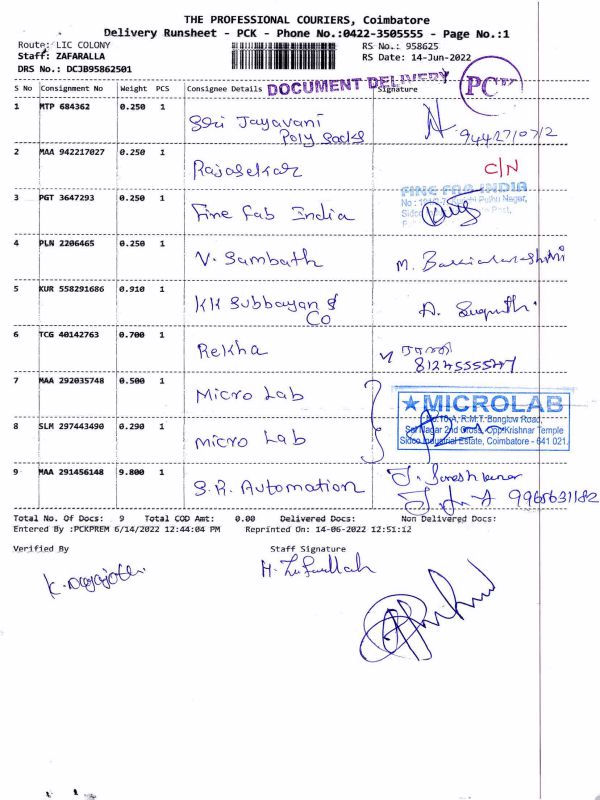 THE PROFESSIONAL COURIERS, Coimbatore
Delivery Runsheet - PCK - Phone No.:0422-3505555 - Page No.:1
Route: LIC COLONY
RS No.: 958625
Staff: ZAFARALLA
RS Date: 14-Jun-2022
DRS No.: DCJB95862501
DOCUMENT DELIVERY
PC
S No Consignment No Weight PCS Consignee Details Signature
1 MTP 684362 0.250 1 Sri Jayavani
Poly Sacks
2 MAA 942217027 0.250 1 Rajasekar C/N
3 PGT 3647293 0.250 1 Fine Fab India FINE FAB INDIA
4 PLN 2206465 0.250 1 V. Sambath M.
5 KUR 558291686 0.910 1 KK Subbayan &
Co
A.
6 TCG 40142763 0.700 1 Rekha
7 MAA 292035748 0.500 1 Micro Lab
★ MICROLAB
No.10-A, R.M.T. Bonglow Road,
Sai Nagar 2nd Cross, Opp.Krishnar Temple
Sidco Industrial Estate, Coimbatore - 641 021.
8 SLM 297443490 0.290 1 Micro Lab
9 MAA 291456148 9.800 1 S.R. Automation J. Sureshkumar
9965631182
Total No. Of Docs: 9 Total COD Amt: 0.00 Delivered Docs: Non Delivered Docs:
Entered By :PCKPREM 6/14/2022 12:44:04 PM Reprinted On: 14-06-2022 12:51:12
Verified By Staff Signature